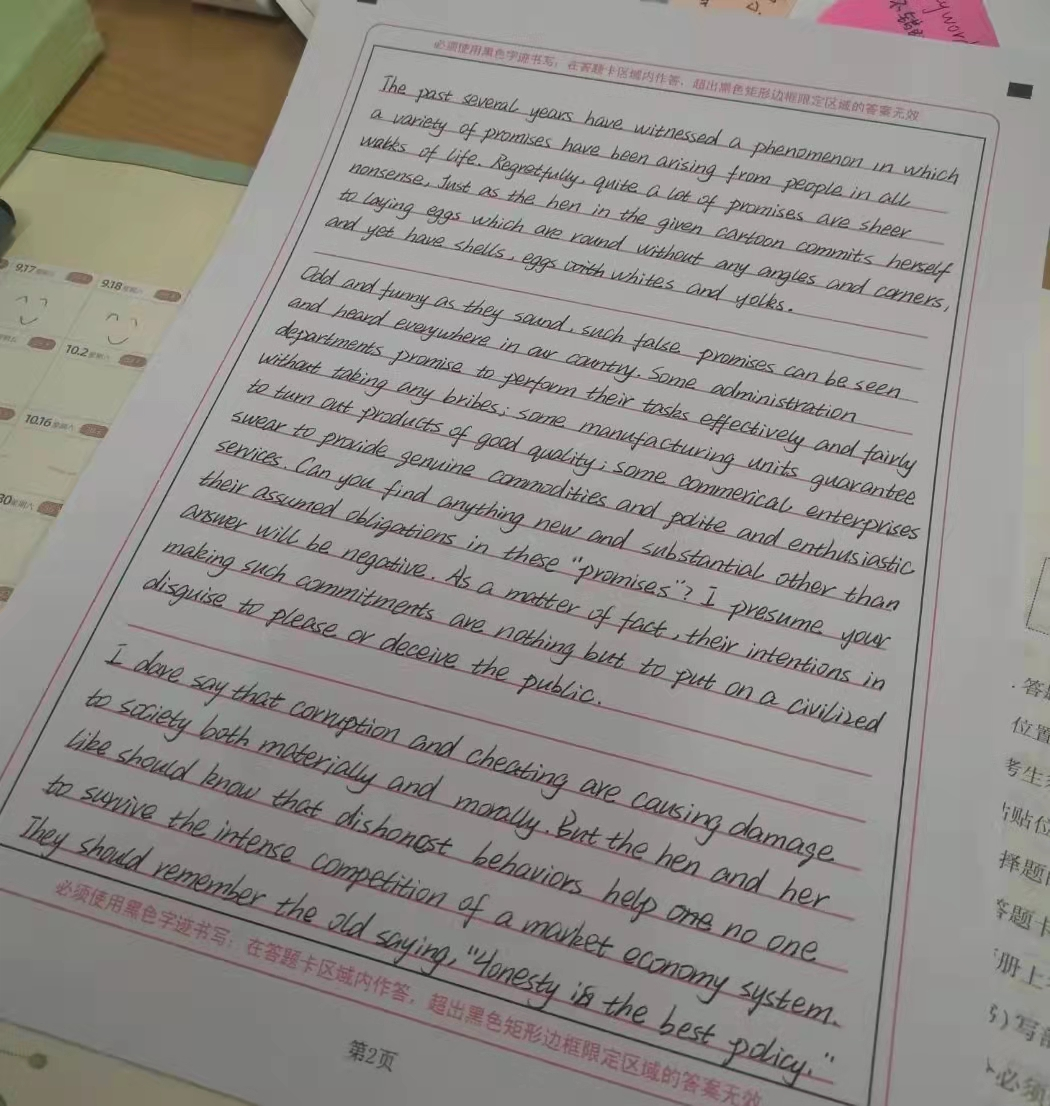 不错
yword
必须使用黑色字迹书写；在答题卡区域内作答，超出黑色矩形边框限定区域的答案无效
The past several years have witnessed a phenomenon in which
a variety of promises have been arising from people in all
walks of life. Regretfully, quite a lot of promises are sheer
nonsense, Just as the hen in the given cartoon commits herself
to laying eggs which are round without any angles and corners,
and yet have shells, eggs with whites and yolks.
Odd and funny as they sound, such false promises can be seen
and heard everywhere in our country. Some administration
departments promise to perform their tasks effectively and fairly
without taking any bribes; some manufacturing units guarantee
to turn out products of good quality; some commerical enterprises
swear to provide genuine commodities and polite and enthusiastic
services. Can you find anything new and substantial other than
their assumed obligations in these "promises"? I presume your
answer will be negative. As a matter of fact, their intentions in
making such commitments are nothing but to put on a civilized
disguise to please or deceive the public.
I dare say that corruption and cheating are causing damage
to society both materially and morally. But the hen and her
like should know that dishonest behaviors help one no one
to survive the intense competition of a market economy system.
They should remember the old saying, "Honesty is the best policy."
必须使用黑色字迹书写；在答题卡区域内作答，超出黑色矩形边框限定区域的答案无效
第2页
9.17
9.18 星期六
10.2 星期六
10.16 星期六
30 星期六
答
位置
考生
贴位
择题
答题卡
册上
写
必须